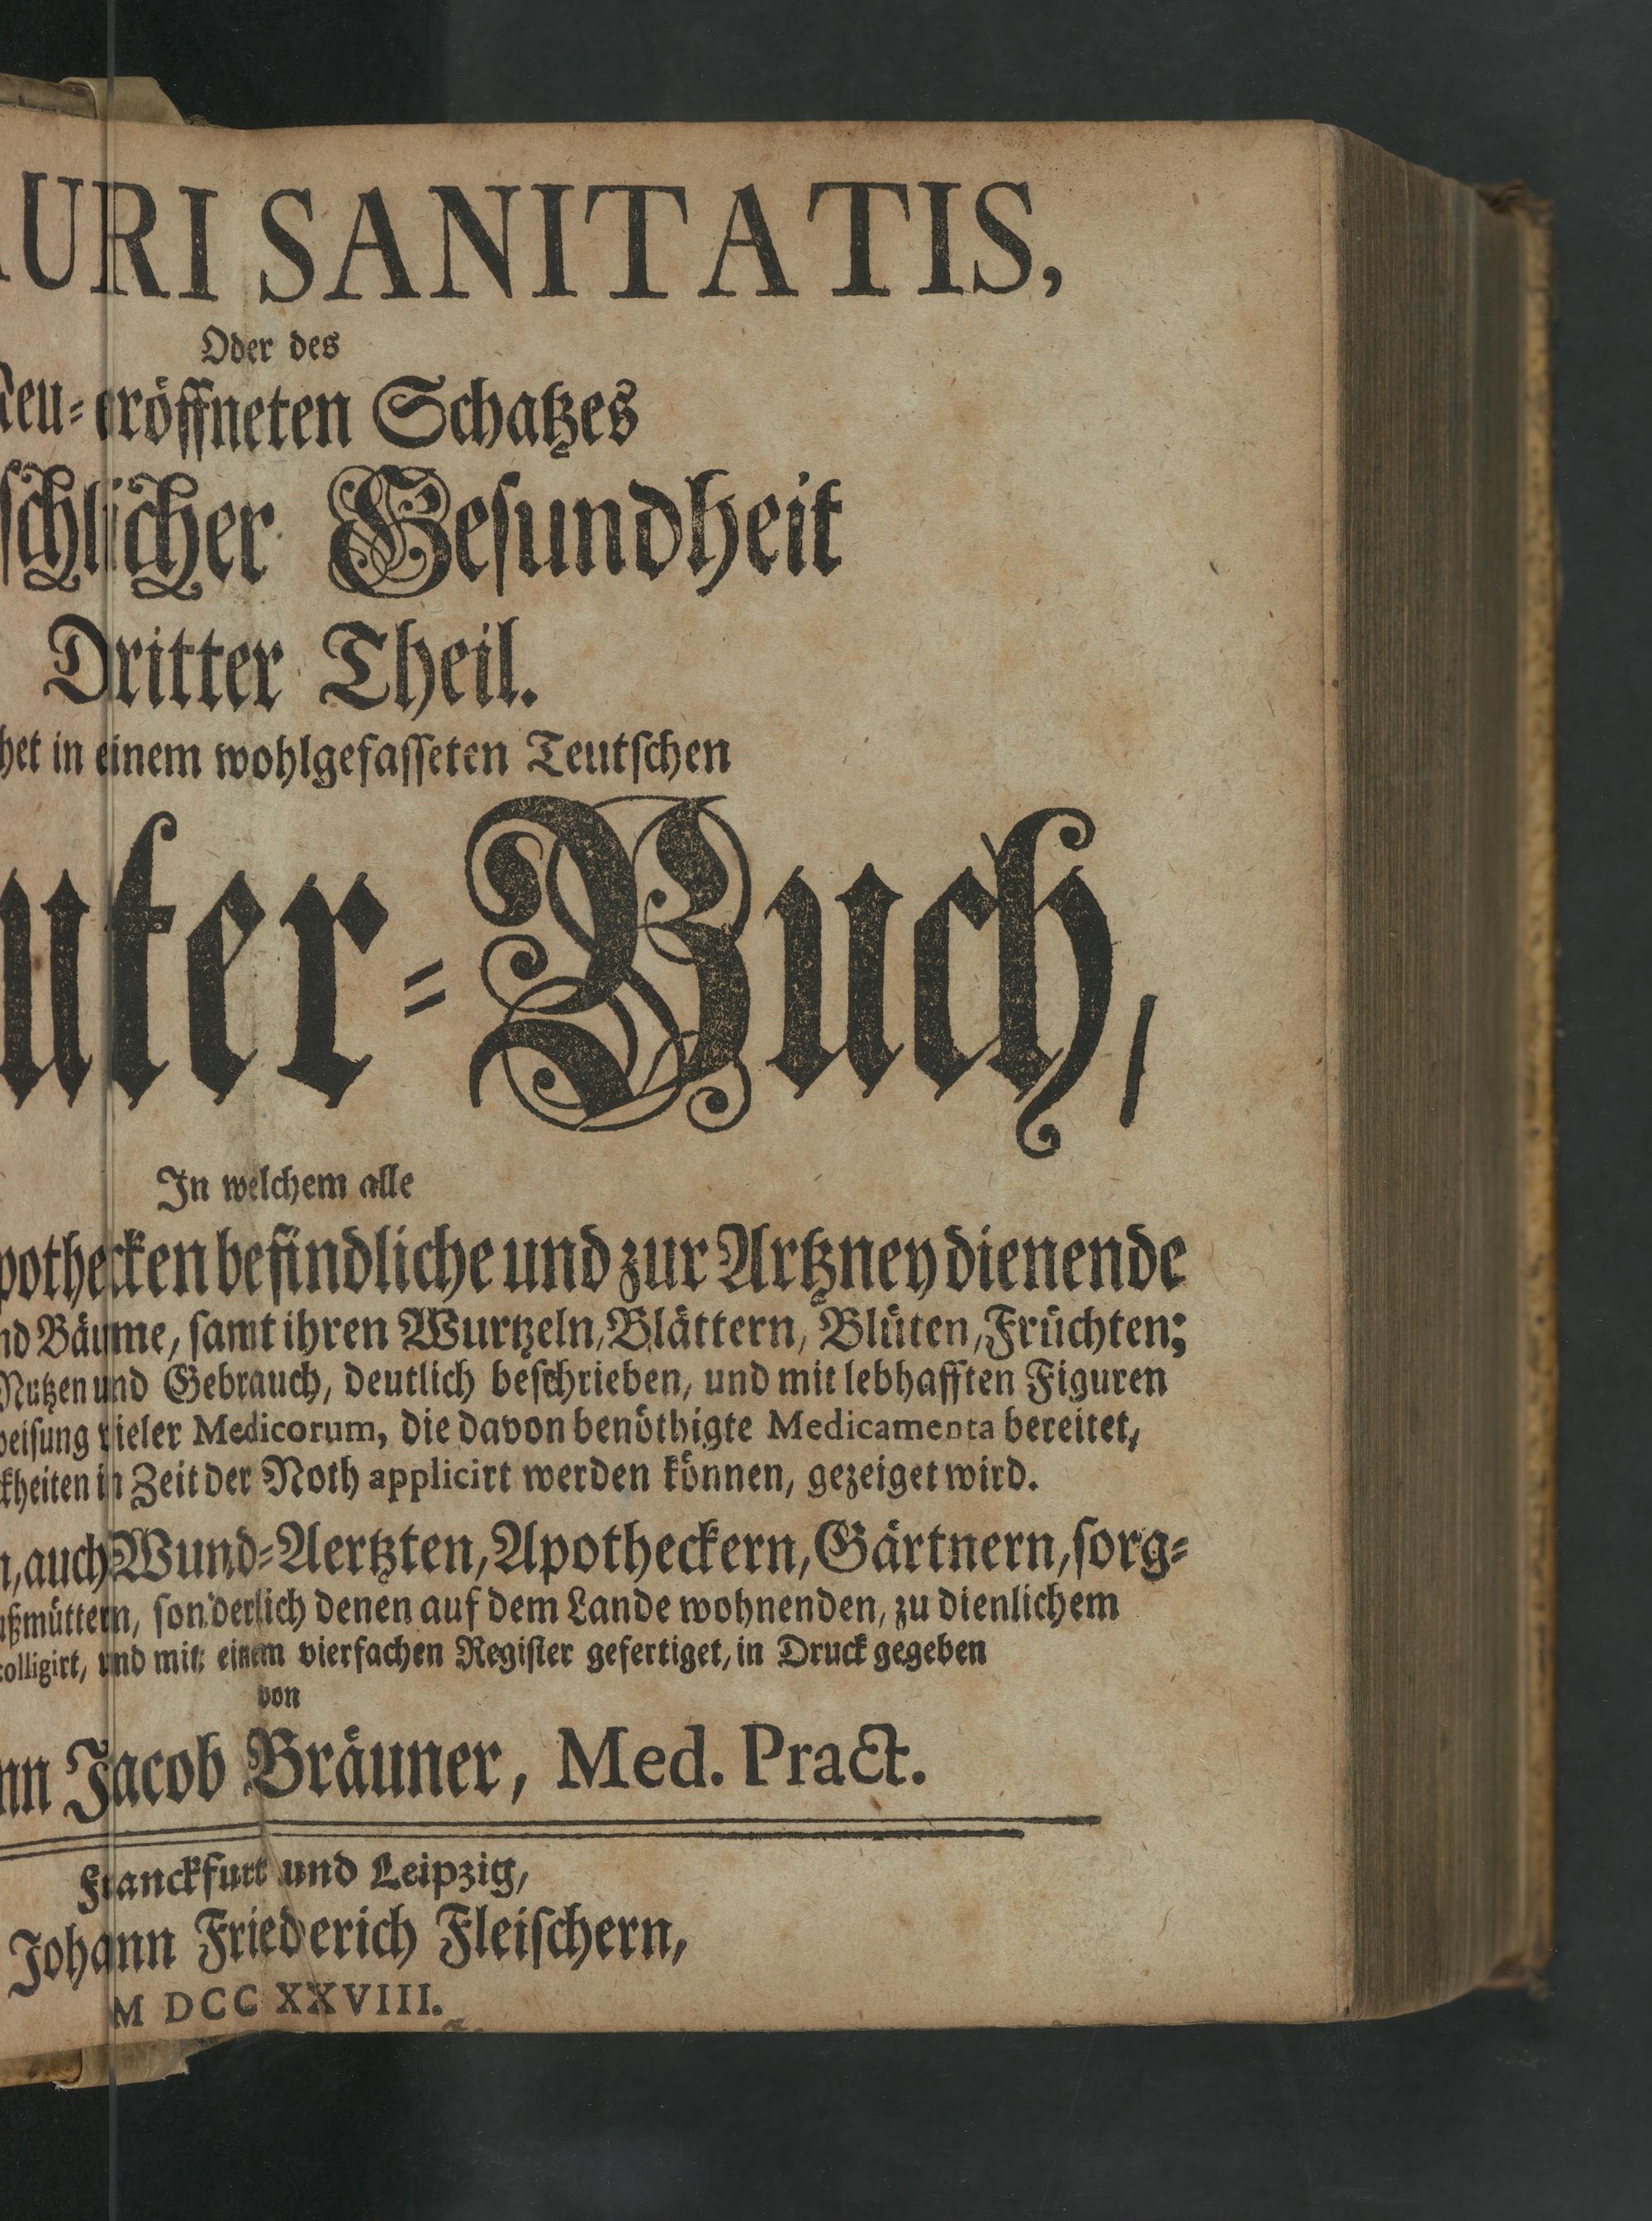 URI SANITATIS,
Oder des
Neu-eröffneten Schatzes
schlicher Gesundheit
Dritter Theil.
het in einem wohlgefasseten Teutschen
uter-Buch,
In welchem alle
pothecken befindliche und zur Artzney dienende
nd Bäume, samt ihren Wurtzeln, Blättern, Blüten, Früchten;
Nutzen und Gebrauch, deutlich beschrieben, und mit lebhafften Figuren
weisung vieler Medicorum, die davon benöthigte Medicamenta bereitet,
ckheiten in Zeit der Noth applicirt werden können, gezeiget wird.
n, auch Wund-Aertzten, Apotheckern, Gärtnern, sorg-
ußmüttern, sonderlich denen auf dem Lande wohnenden, zu dienlichem
colligirt, und mit einem vierfachen Register gefertiget, in Druck gegeben
von
nn Jacob Bräuner, Med. Pract.
Franckfurt und Leipzig,
Johann Friederich Fleischern,
M DCC XXVIII.